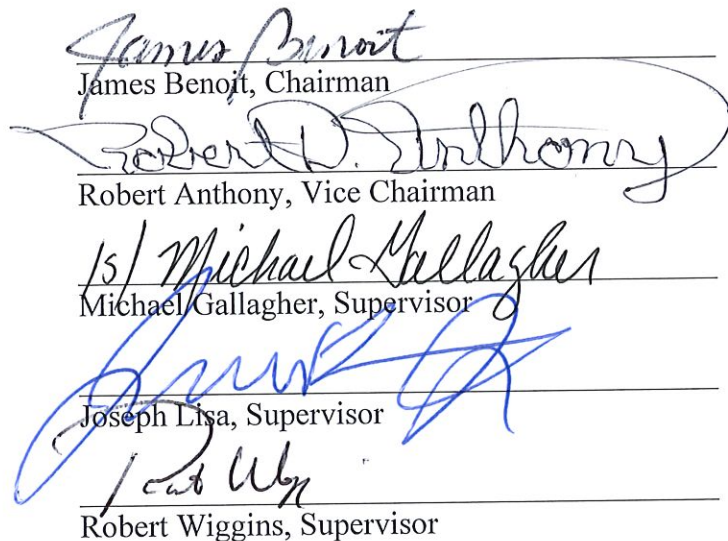 James Benoit
James Benoit, Chairman
Robert D. Anthony
Robert Anthony, Vice Chairman
/s/ Michael Gallagher
Michael Gallagher, Supervisor
Joseph Lisa, Supervisor
Robert Wiggins, Supervisor